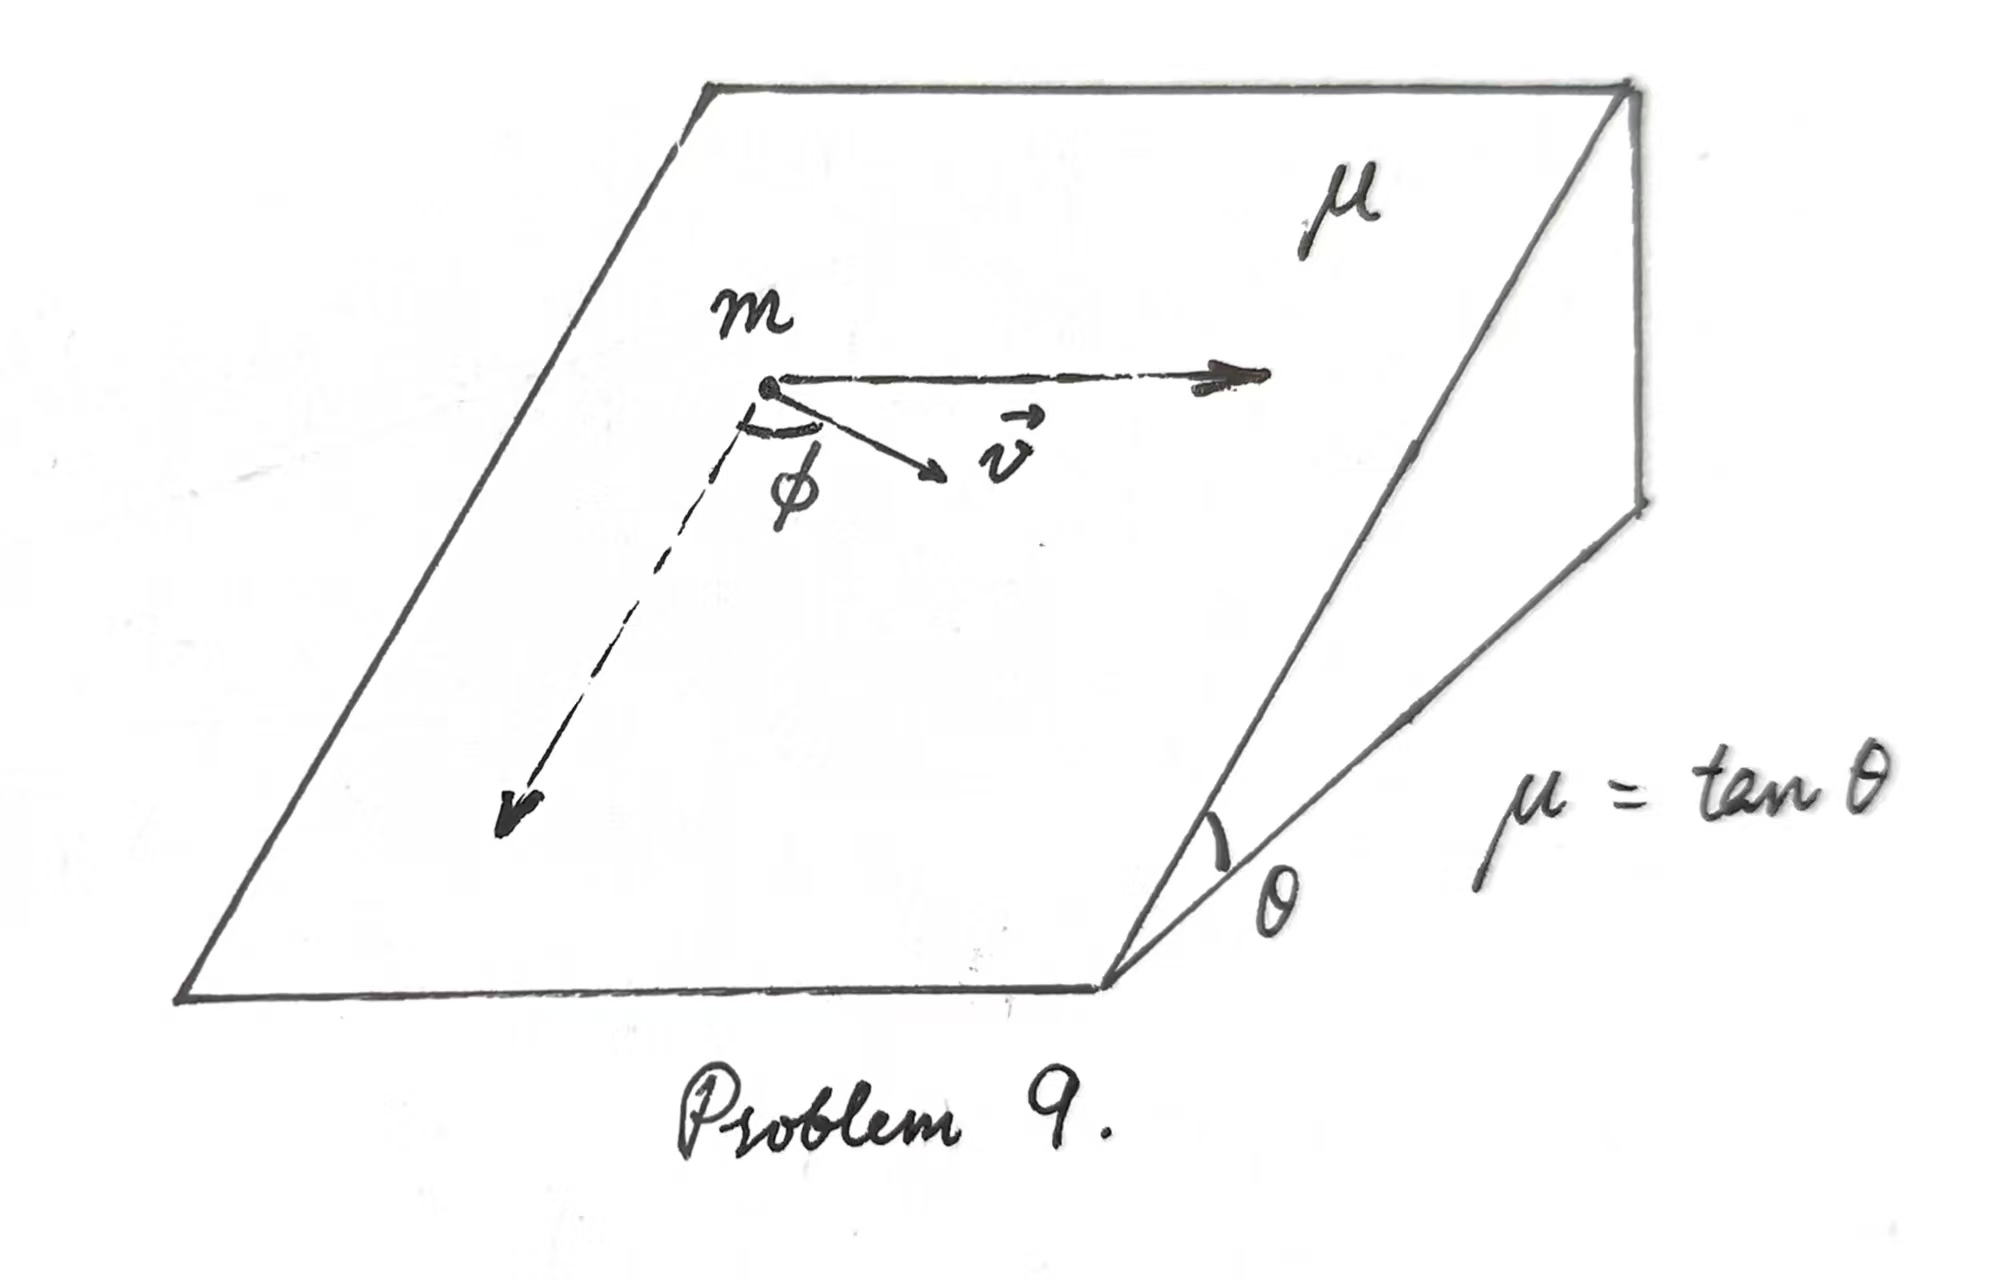 μ
m
v⃗
ϕ
μ = tan θ
θ
Problem 9.